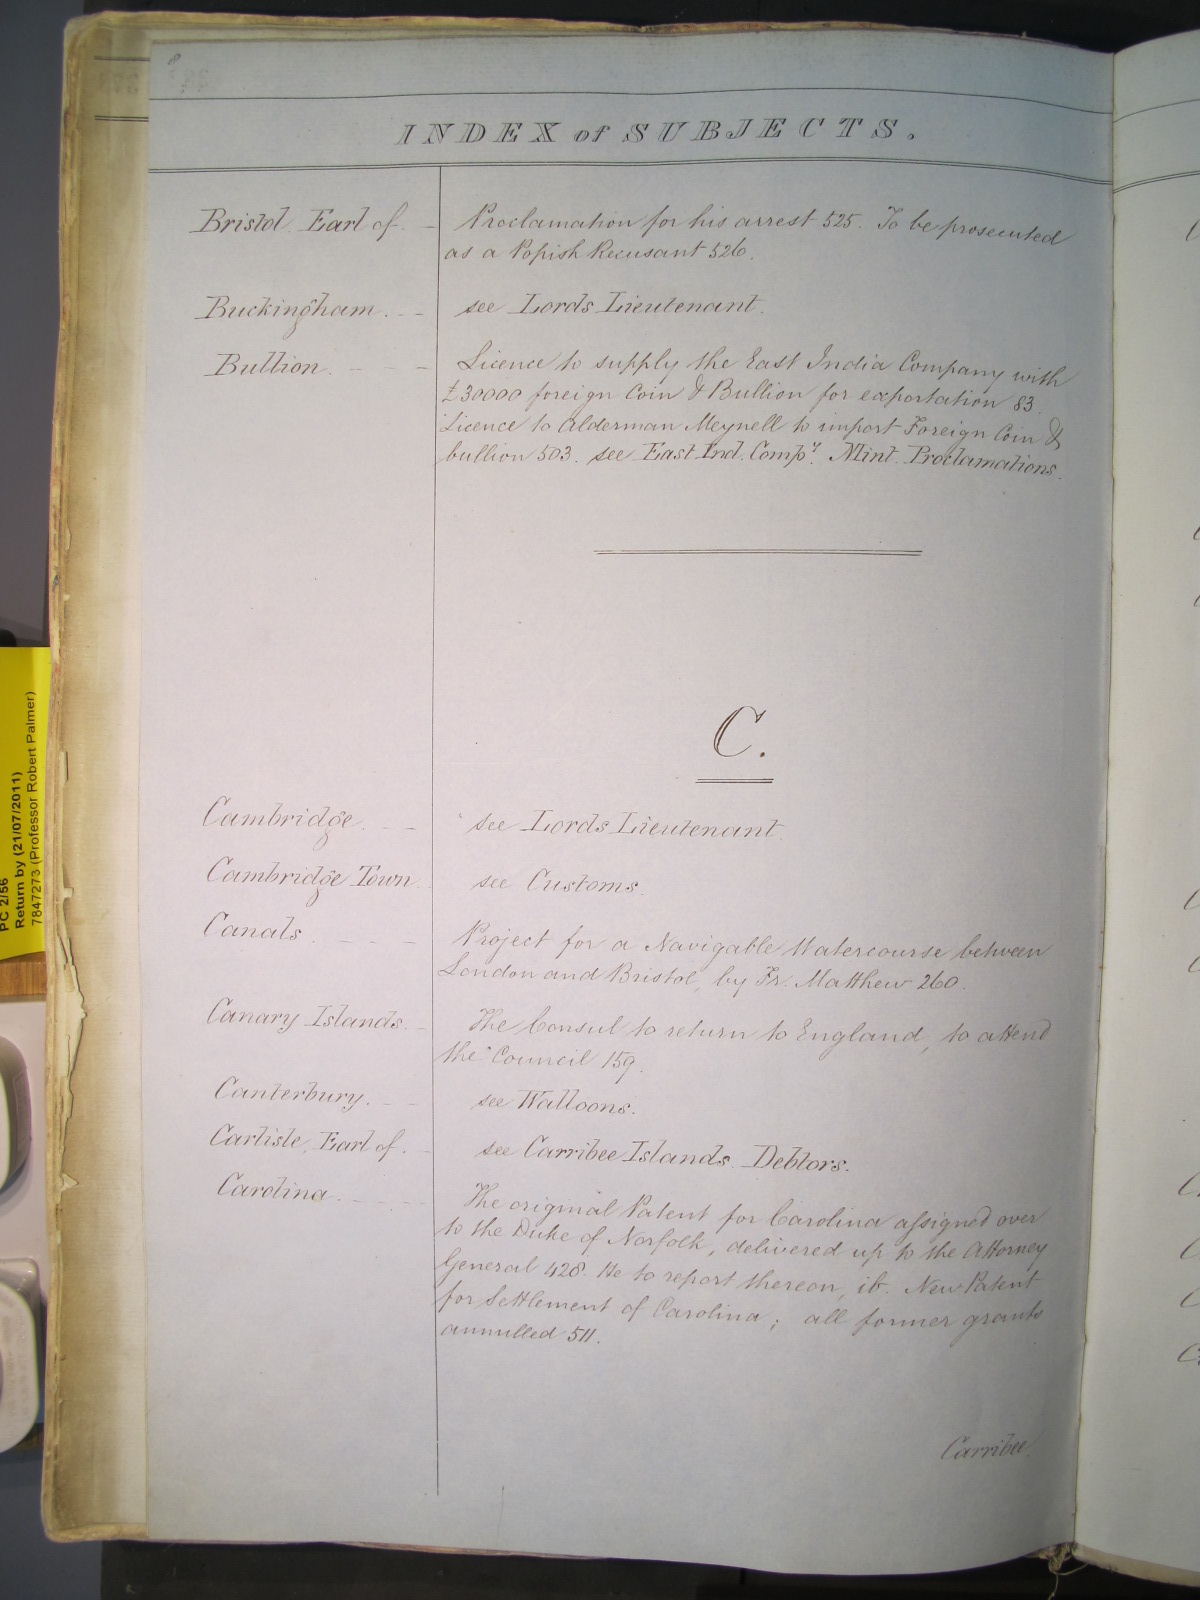 8
INDEX of SUBJECTS.
Bristol Earl of. - Proclamation for his arrest 525. To be prosecuted
as a Popish Recusant 526.
Buckingham. - - see Lords Lieutenant.
Bullion. - - - Licence to supply the East India Company with
£30000 foreign Coin & Bullion for exportation 83.
Licence to Alderman Meynell to import Foreign Coin &
bullion 503. see East Ind. Compy. Mint. Proclamations.
C.
Cambridge. - - see Lords Lieutenant.
Cambridge Town. see Customs.
Canals. - - - Project for a Navigable Watercourse between
London and Bristol, by Fr. Matthew 260.
Canary Islands. - The Consul to return to England, to attend
the Council 159.
Canterbury. - - see Walloons.
Carlisle, Earl of. - see Carribee Islands. Debtors.
Carolina. - - - The original Patent for Carolina assigned over
to the Duke of Norfolk, delivered up to the Attorney
General 428. He to report thereon, ib. New Patent
for Settlement of Carolina; all former grants
annulled 511.
Carribee
PC 2/56
Return by (21/07/2011)
7847273 (Professor Robert Palmer)